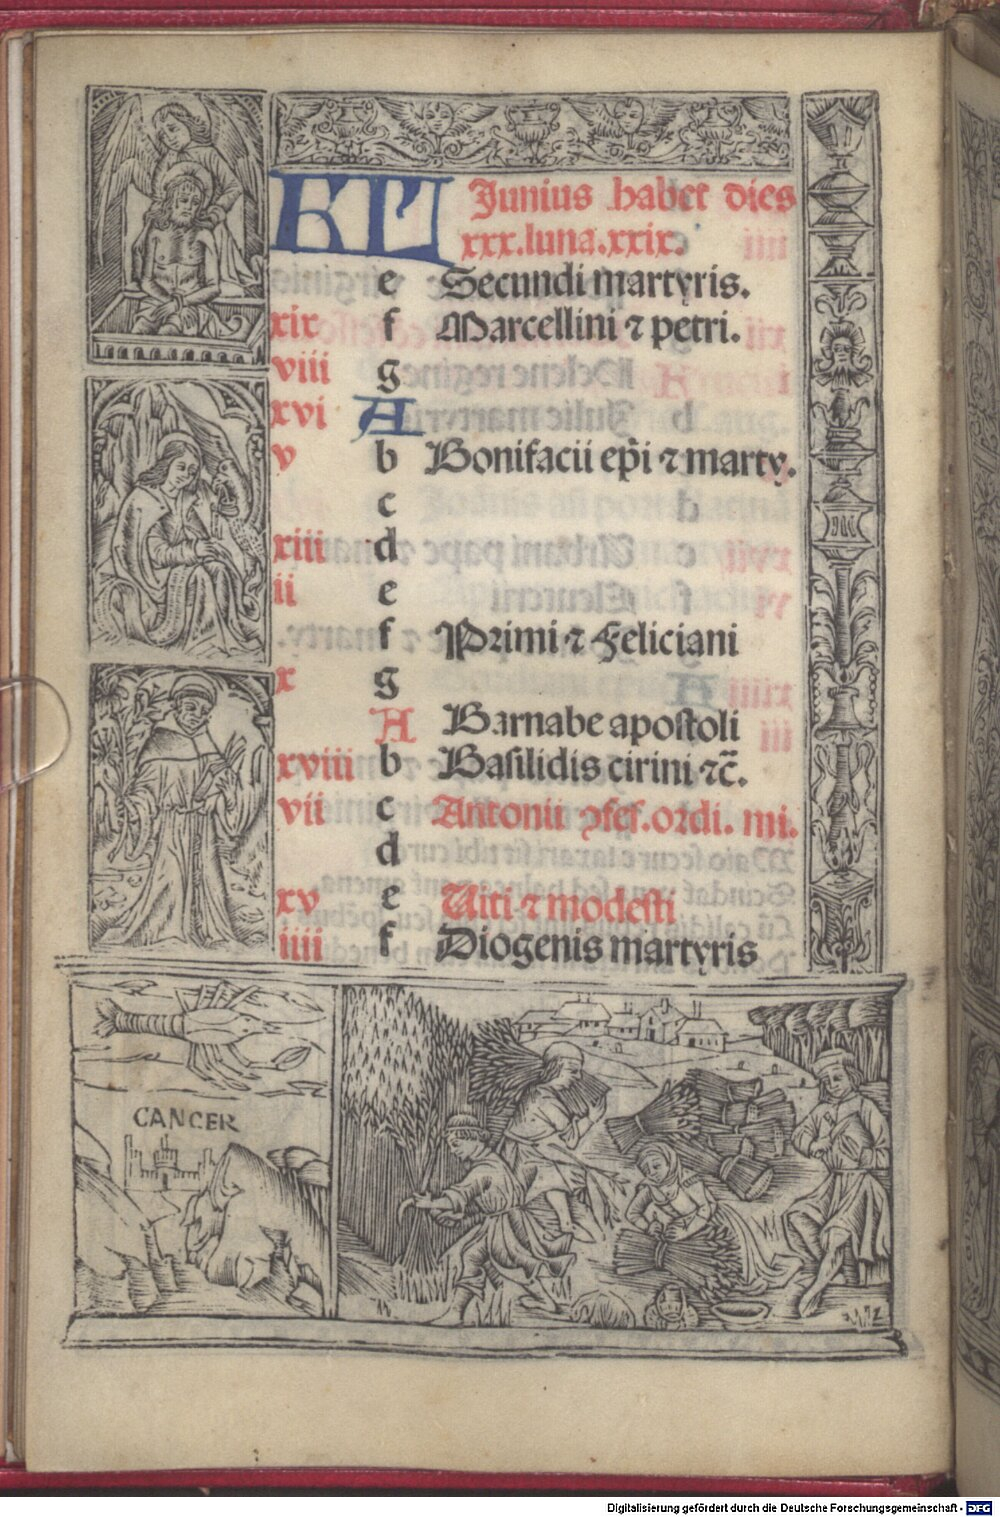 KL Junius habet dies
xxx.luna.xxix.
e Secundi martyris.
xix f Marcellini ⁊ petri.
viii g
xvi A
v b Bonifacii ep̄i ⁊ marty.
c
xiii d
ii e
f Primi ⁊ Feliciani
x g
A Barnabe apostoli
xviii b Basilidis cirini ⁊c̄.
vii c Antonii ꝯfes.ordi. mi.
d
xv e Uiti ⁊ modesti
iiii f Diogenis martyris
CANCER
Digitalisierung gefördert durch die Deutsche Forschungsgemeinschaft - DFG